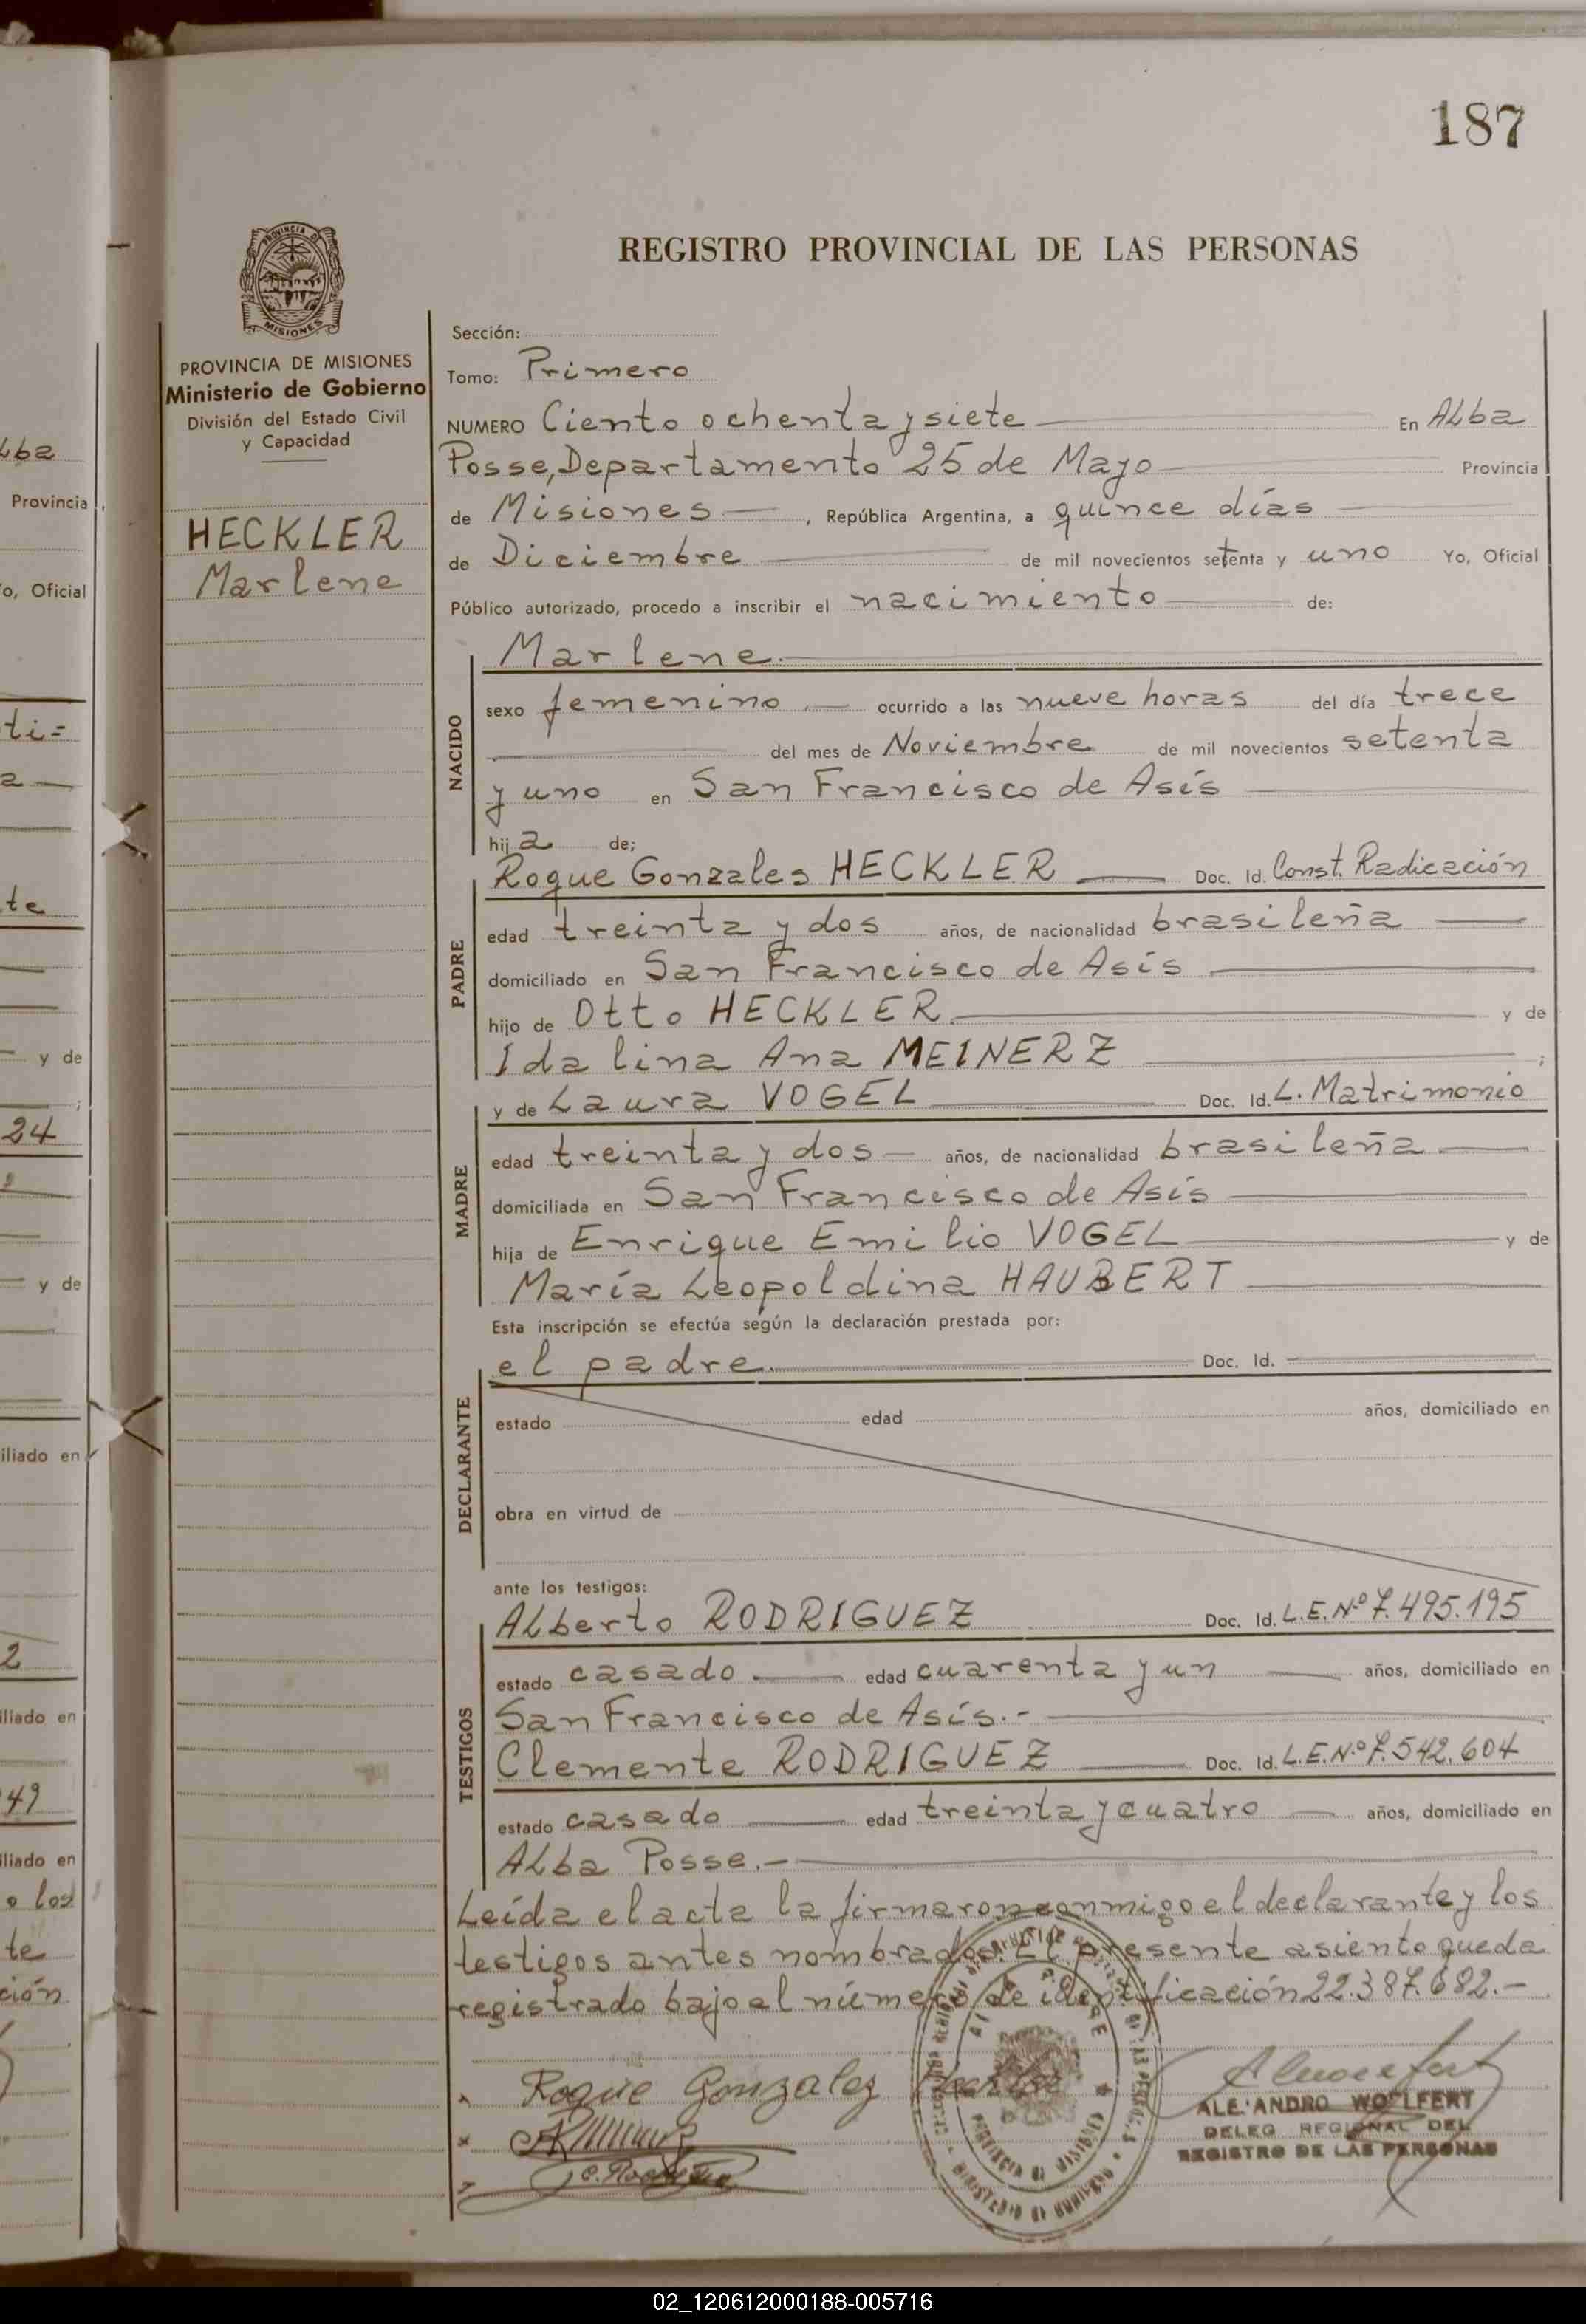 187
PROVINCIA DE
MISIONES
REGISTRO PROVINCIAL DE LAS PERSONAS
PROVINCIA DE MISIONES
Ministerio de Gobierno
División del Estado Civil
y Capacidad
HECKLER
Marlene
Sección:
Tomo: Primero
NUMERO Ciento ochenta y siete En ALba
Posse, Departamento 25 de Mayo Provincia
de Misiones , República Argentina, a quince días
de Diciembre de mil novecientos setenta y uno Yo, Oficial
Público autorizado, procedo a inscribir el nacimiento de:
NACIDO
Marlene.
sexo femenino ocurrido a las nueve horas del día trece
del mes de Noviembre de mil novecientos setenta
y uno en San Francisco de Asís
hija de;
PADRE
Roque Gonzales HECKLER Doc. Id. Const. Radicación
edad treinta y dos años, de nacionalidad brasileña
domiciliado en San Francisco de Asís
hijo de Otto HECKLER y de
Idalina Ana MEINERZ ;
MADRE
y de Laura VOGEL Doc. Id. L. Matrimonio
edad treinta y dos años, de nacionalidad brasileña
domiciliada en San Francisco de Asís
hija de Enrique Emilio VOGEL y de
María Leopoldina HAUBERT
Esta inscripción se efectúa según la declaración prestada por:
DECLARANTE
el padre. Doc. Id.
estado edad años, domiciliado en
obra en virtud de
ante los testigos:
TESTIGOS
ALberto RODRIGUEZ Doc. Id. L.E.Nº 7.495.195
estado casado edad cuarenta y un años, domiciliado en
San Francisco de Asís.-
Clemente RODRIGUEZ Doc. Id. L.E.N.º 7.542.604
estado casado edad treinta y cuatro años, domiciliado en
ALba Posse.-
Leída el acta la firmaron conmigo el declarante y los
testigos antes nombrados. El presente asiento queda
registrado bajo el número de identificación 22.387.682.-
Roque Gonzalez Heckler
ALEJANDRO WOLFERT
DELEG REGIONAL DEL
REGISTRO DE LAS PERSONAS
Lba
Provincia
o, Oficial
ti=
a
te
y de
24
y de
iliado en
2
iliado en
49
iliado en
o los
te
ción
02_120612000188-005716